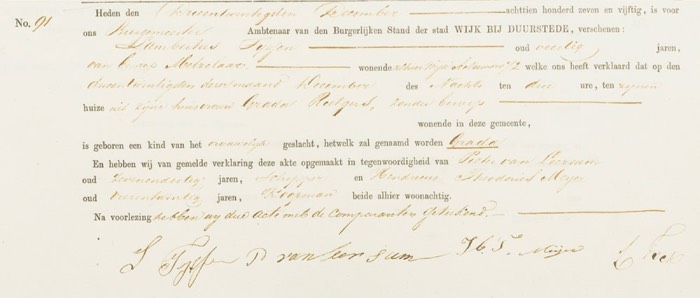 No. 91
Heden den December achttien honderd zeven en vijftig, is voor
ons Burgemeester Ambtenaar van den Burgerlijken Stand der stad WIJK BIJ DUURSTEDE, verschenen:
Lambertus oud veertig jaren,
van beroep Metselaar, wonende welke ons heeft verklaard dat op den
dezer maand December des Nachts ten drie ure, ten zijnen
huize uit zijne huisvrouw Grada zonder beroep
wonende in deze gemeente,
is geboren een kind van het vrouwelijk geslacht, hetwelk zal genaamd worden Grada
En hebben wij van gemelde verklaring deze akte opgemaakt in tegenwoordigheid van Pieter van Leersum
oud jaren, Schipper en Theodorus Meijer
oud jaren, Koopman beide alhier woonachtig.
Na voorlezing hebben wij deze Acte met de Comparanten geteekend.
L P van Leersum H. T. Meijer